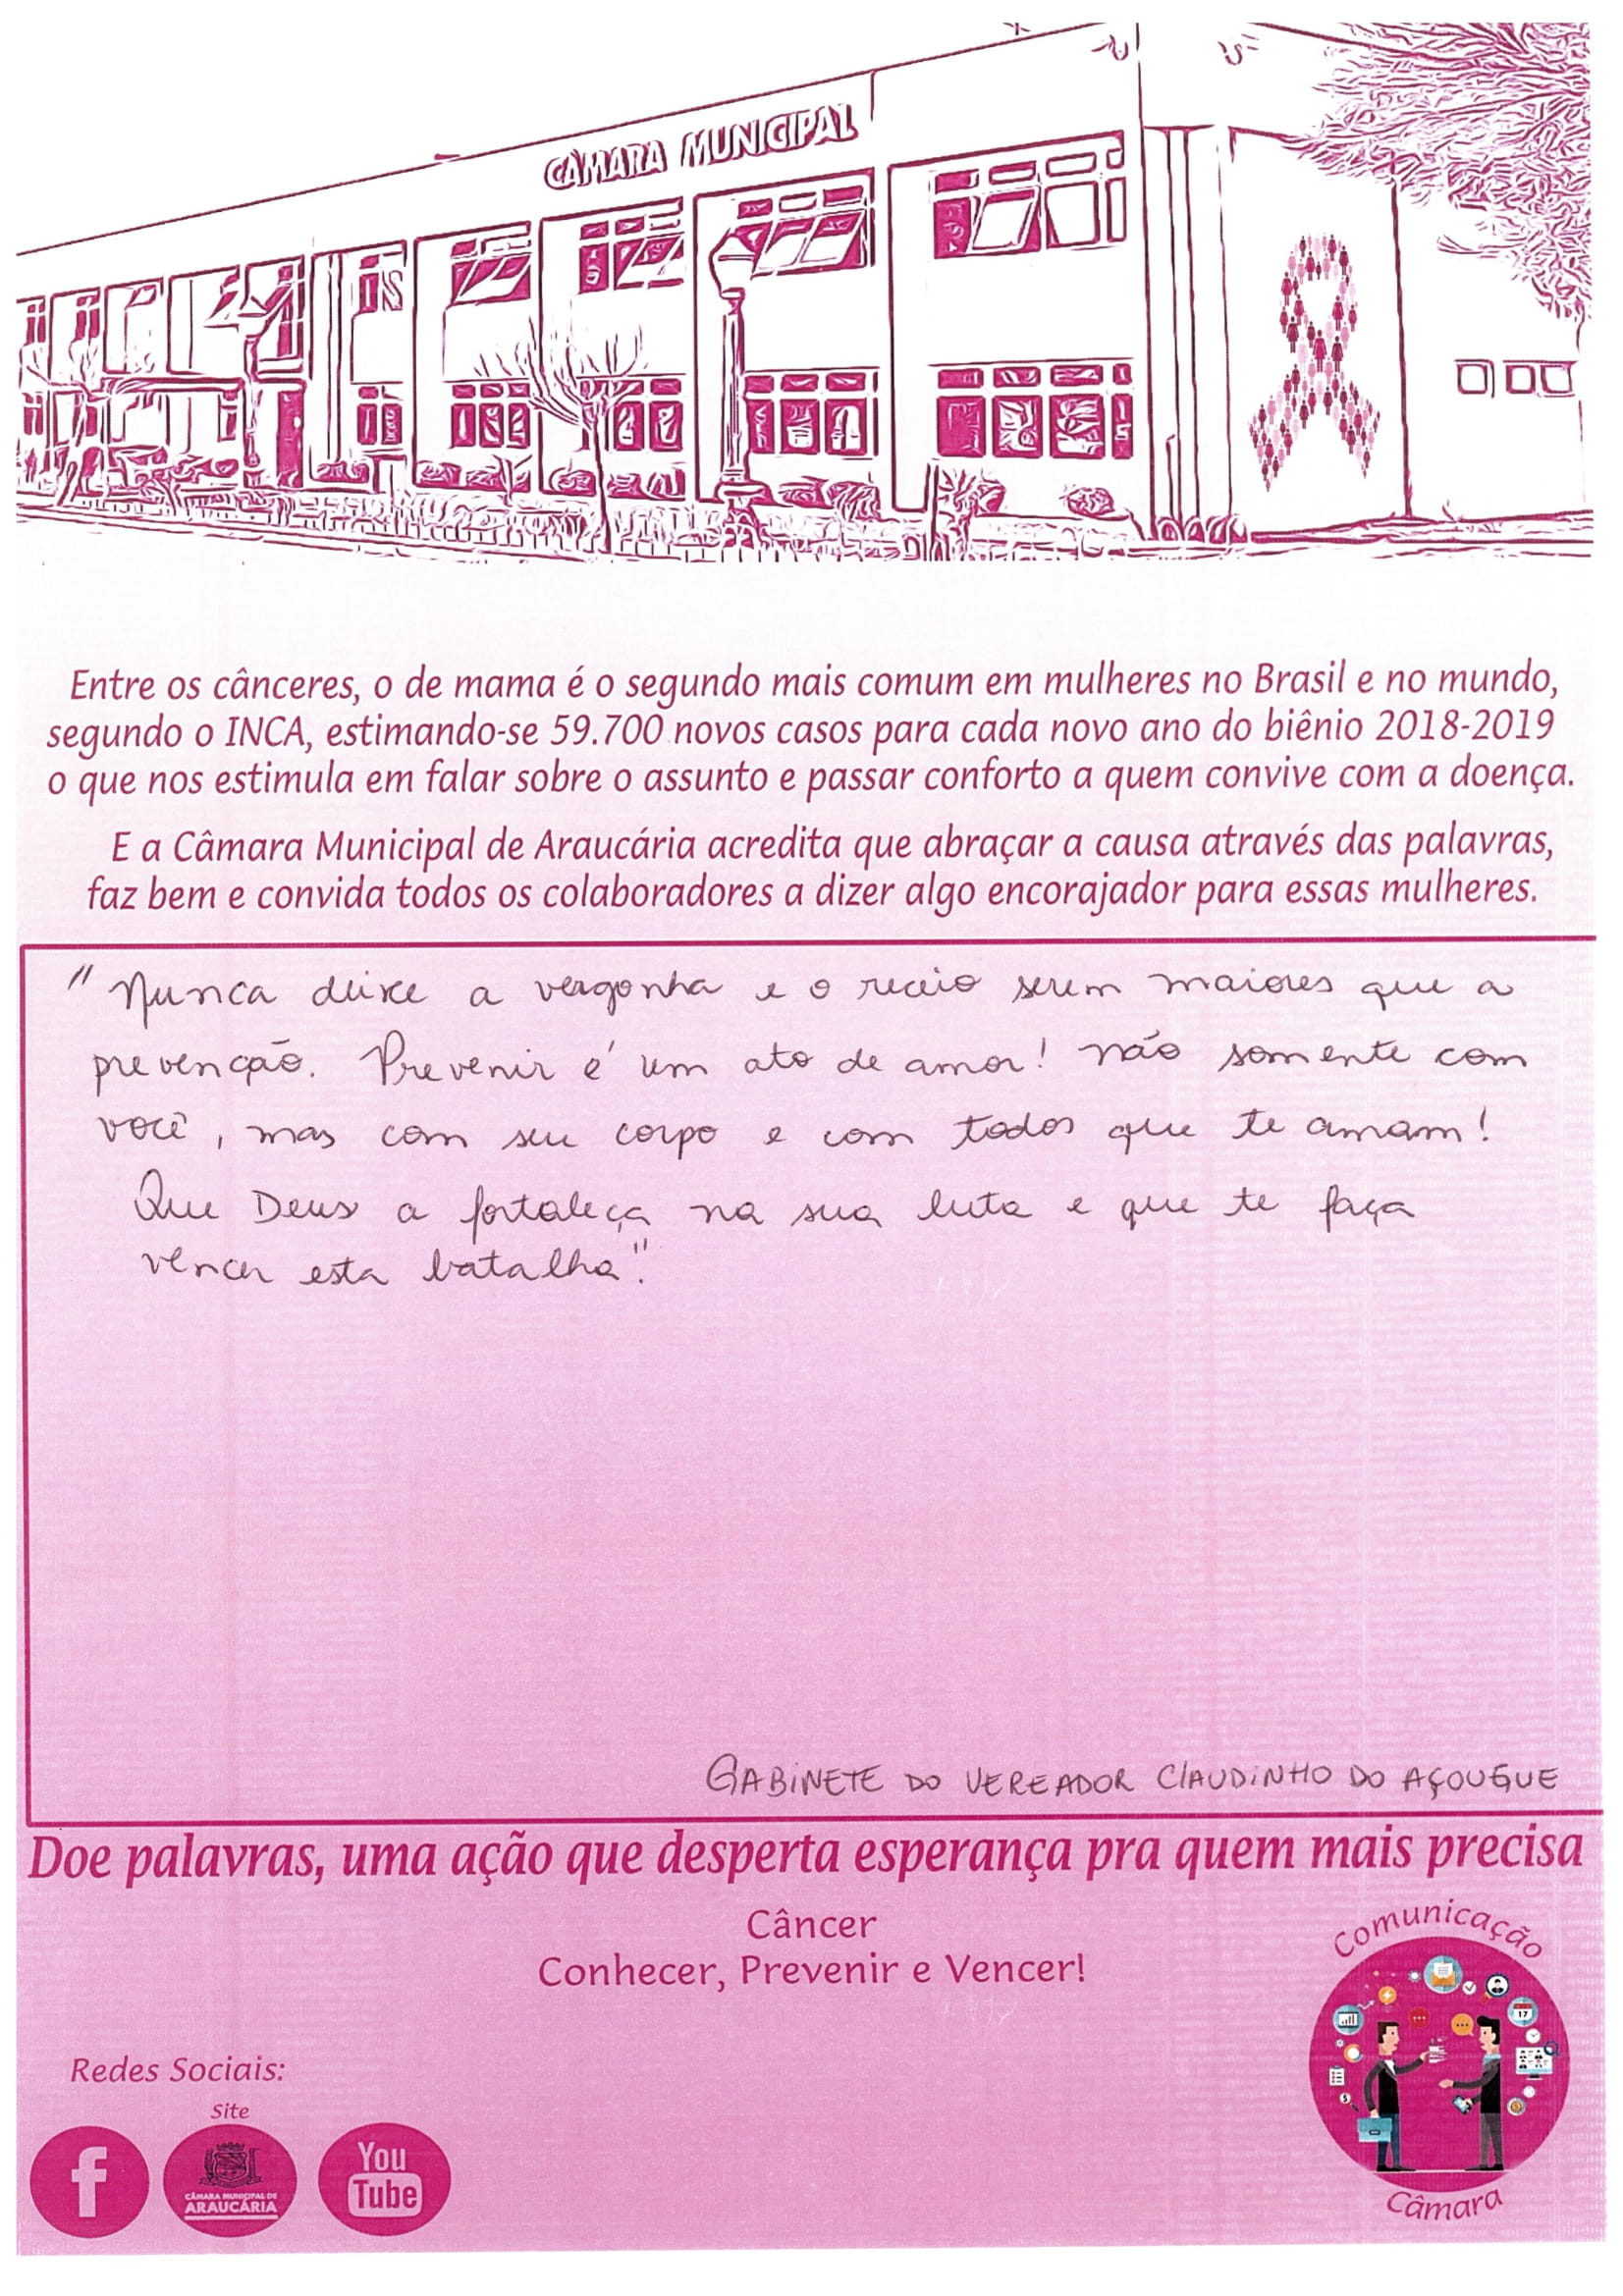 CÂMARA MUNICIPAL
Entre os cânceres, o de mama é o segundo mais comum em mulheres no Brasil e no mundo,
segundo o INCA, estimando-se 59.700 novos casos para cada novo ano do biênio 2018-2019
o que nos estimula em falar sobre o assunto e passar conforto a quem convive com a doença.
E a Câmara Municipal de Araucária acredita que abraçar a causa através das palavras,
faz bem e convida todos os colaboradores a dizer algo encorajador para essas mulheres.
"Nunca deixe a vergonha e o receio serem maiores que a
prevenção. Prevenir é um ato de amor! não somente com
você, mas com seu corpo e com todos que te amam!
Que Deus a fortaleça na sua luta e que te faça
vencer esta batalha".
GABINETE DO VEREADOR CLAUDINHO DO AÇOUGUE
Doe palavras, uma ação que desperta esperança pra quem mais precisa
Câncer
Conhecer, Prevenir e Vencer!
Comunicação
17
Câmara
Redes Sociais:
Site
f
CÂMARA MUNICIPAL DE
ARAUCÁRIA
You
Tube